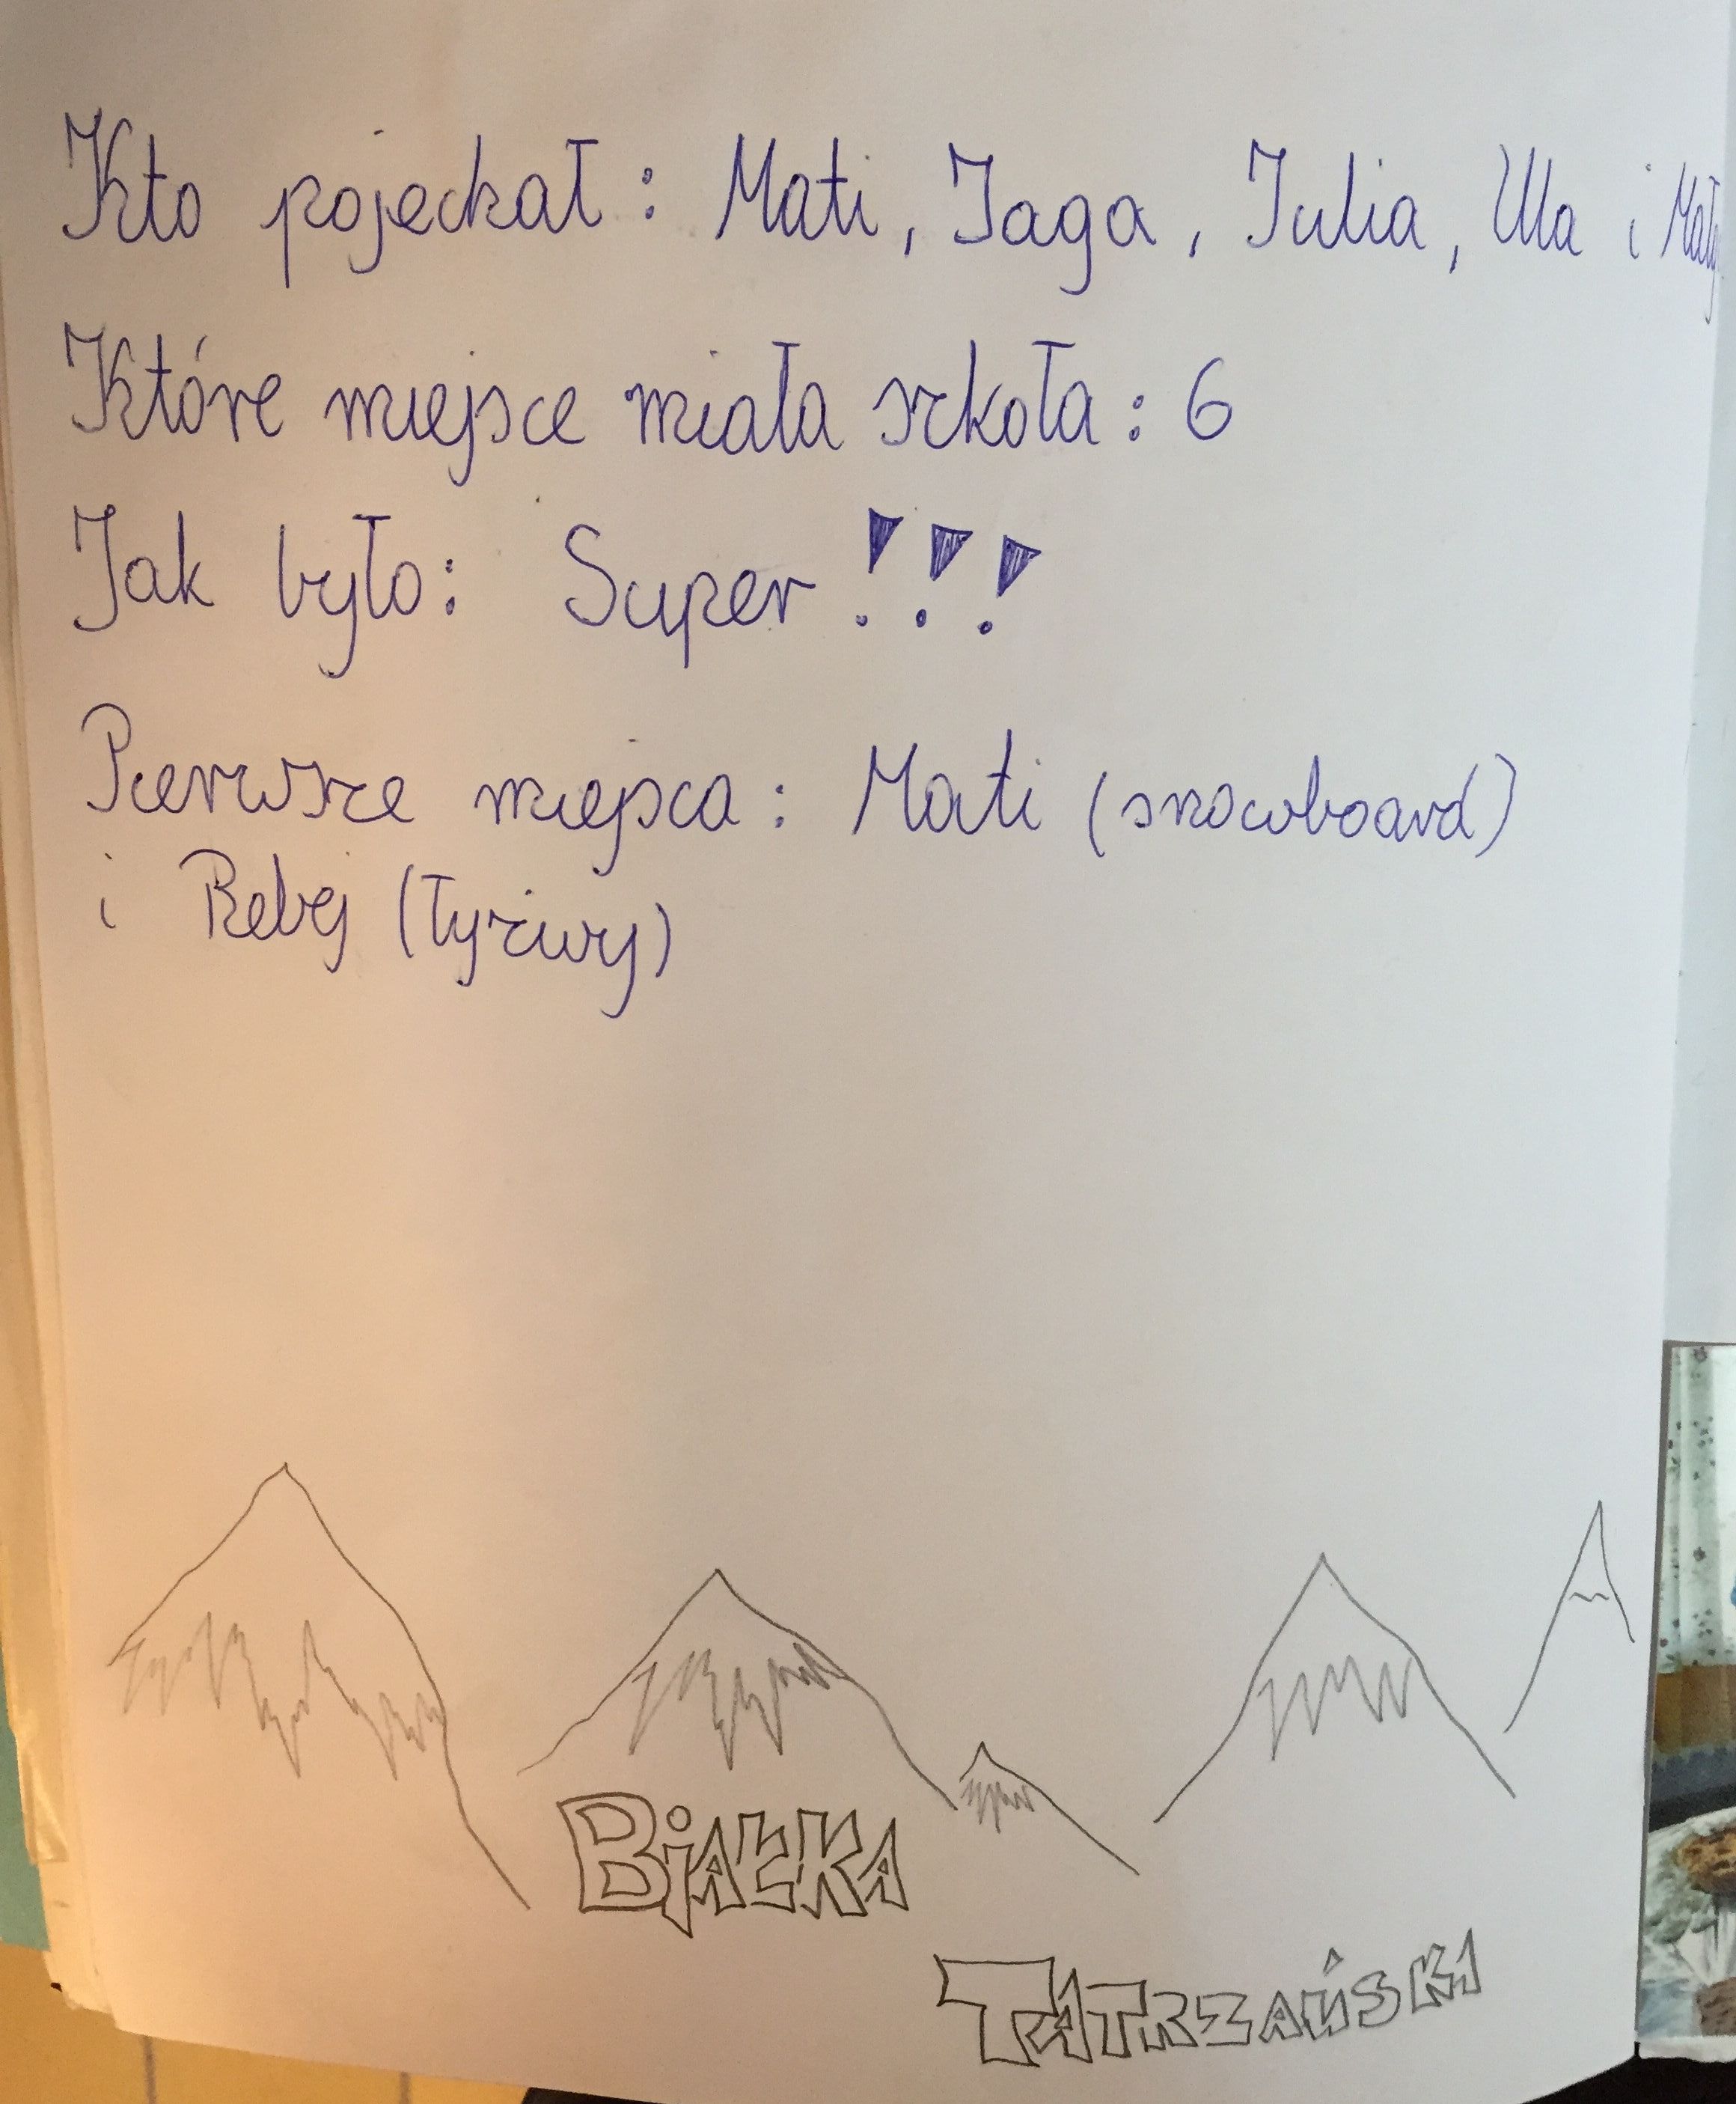 Kto pojechał: Mati, Jaga, Julia, Ula i
Które miejsce miała szkoła: 6
Jak było: Super!!!
Pierwsze miejsca: Mati (snowboard)
i Rebej (łyżwy)
BjAŁKA
TATRZAŃSKA